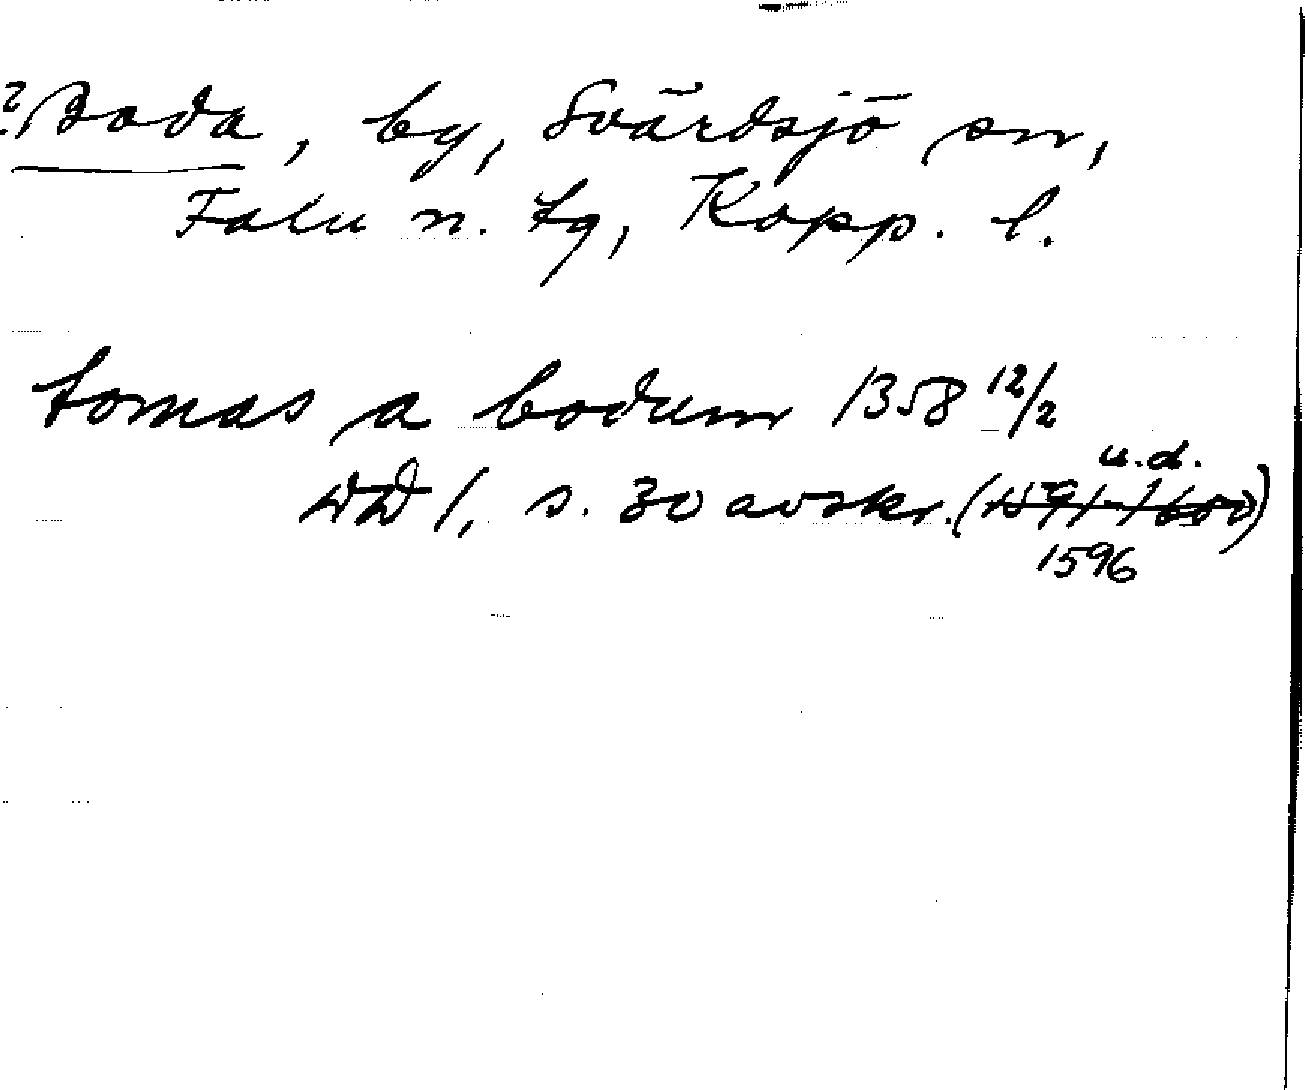 ?Boda, by, Svärdsjö sn,
Falu n. tg, Kopp. l.
tomas a bodum 1358 12/2
u.d.
DD 1, s. 30 avskr. (1591-1600)
1596